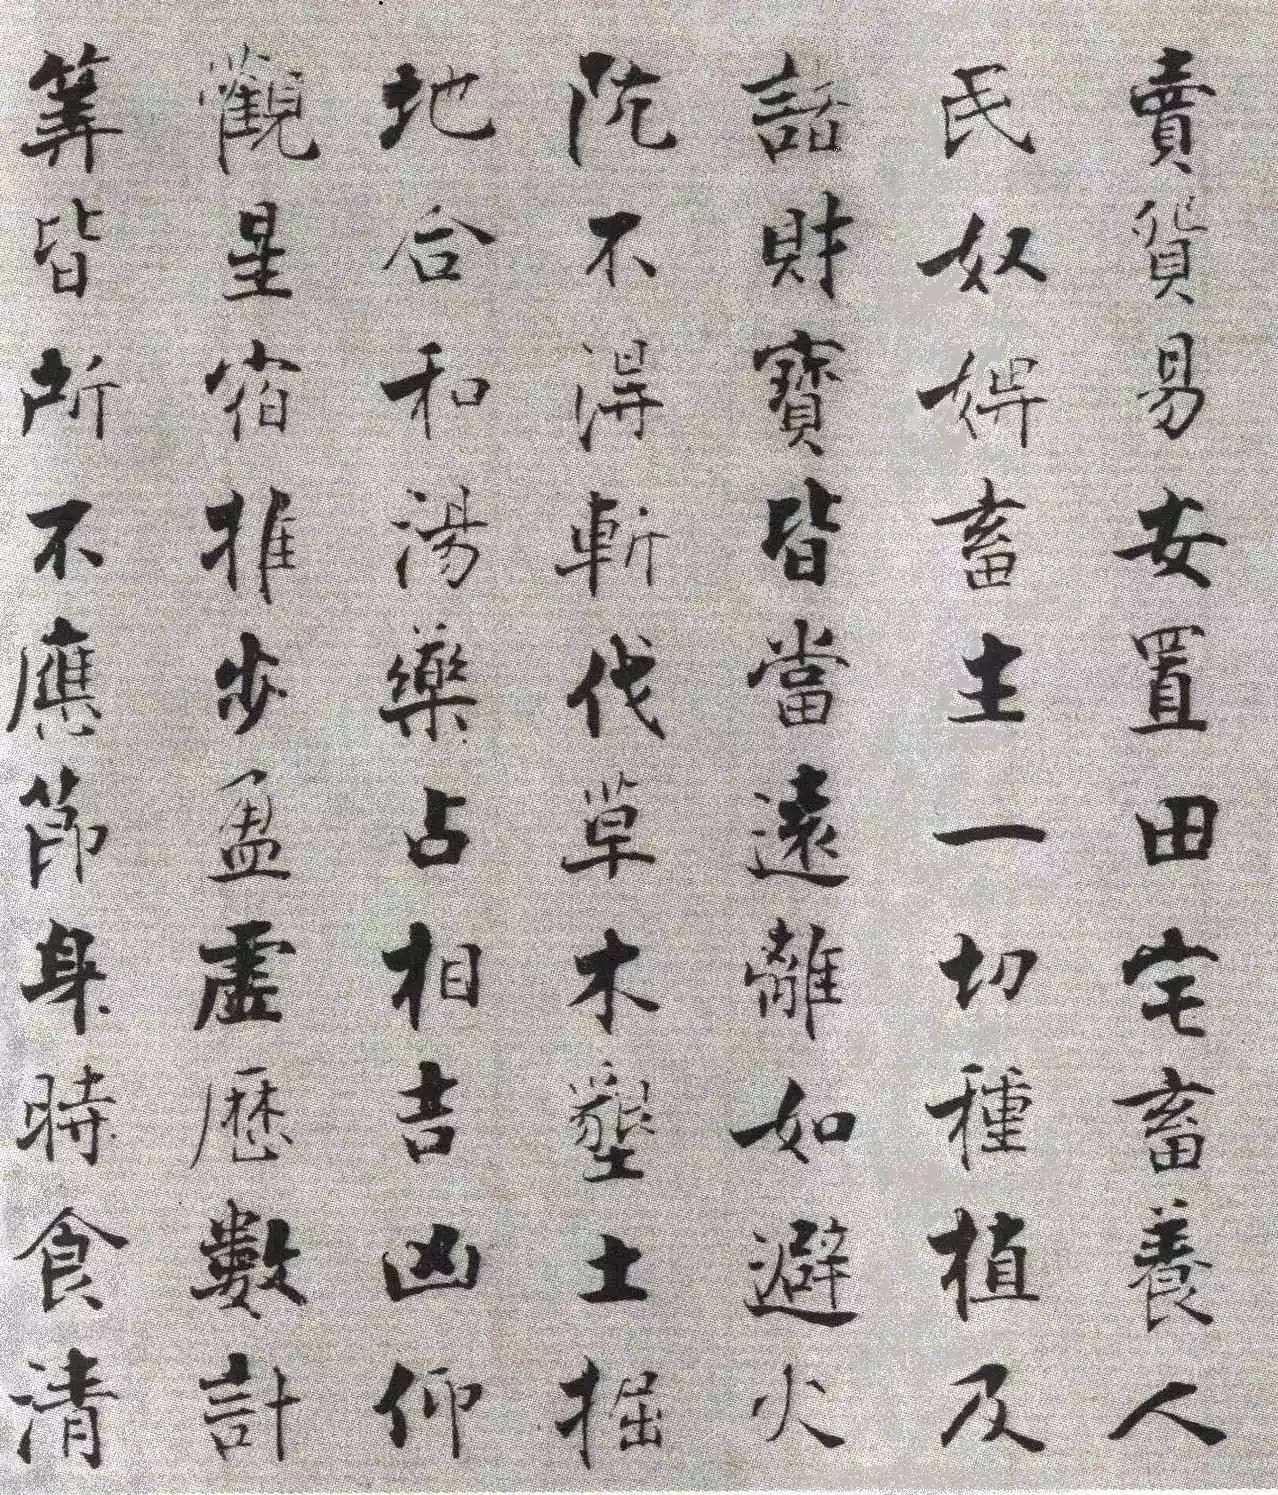 賣貿易安置田宅畜養人
民奴婢畜生一切種植及
諸財寶皆當遠離如避火
阬不得斬伐草木墾土掘
地合和湯藥占相吉凶仰
觀星宿推步盈虛歷數計
筭皆所不應節身時食清